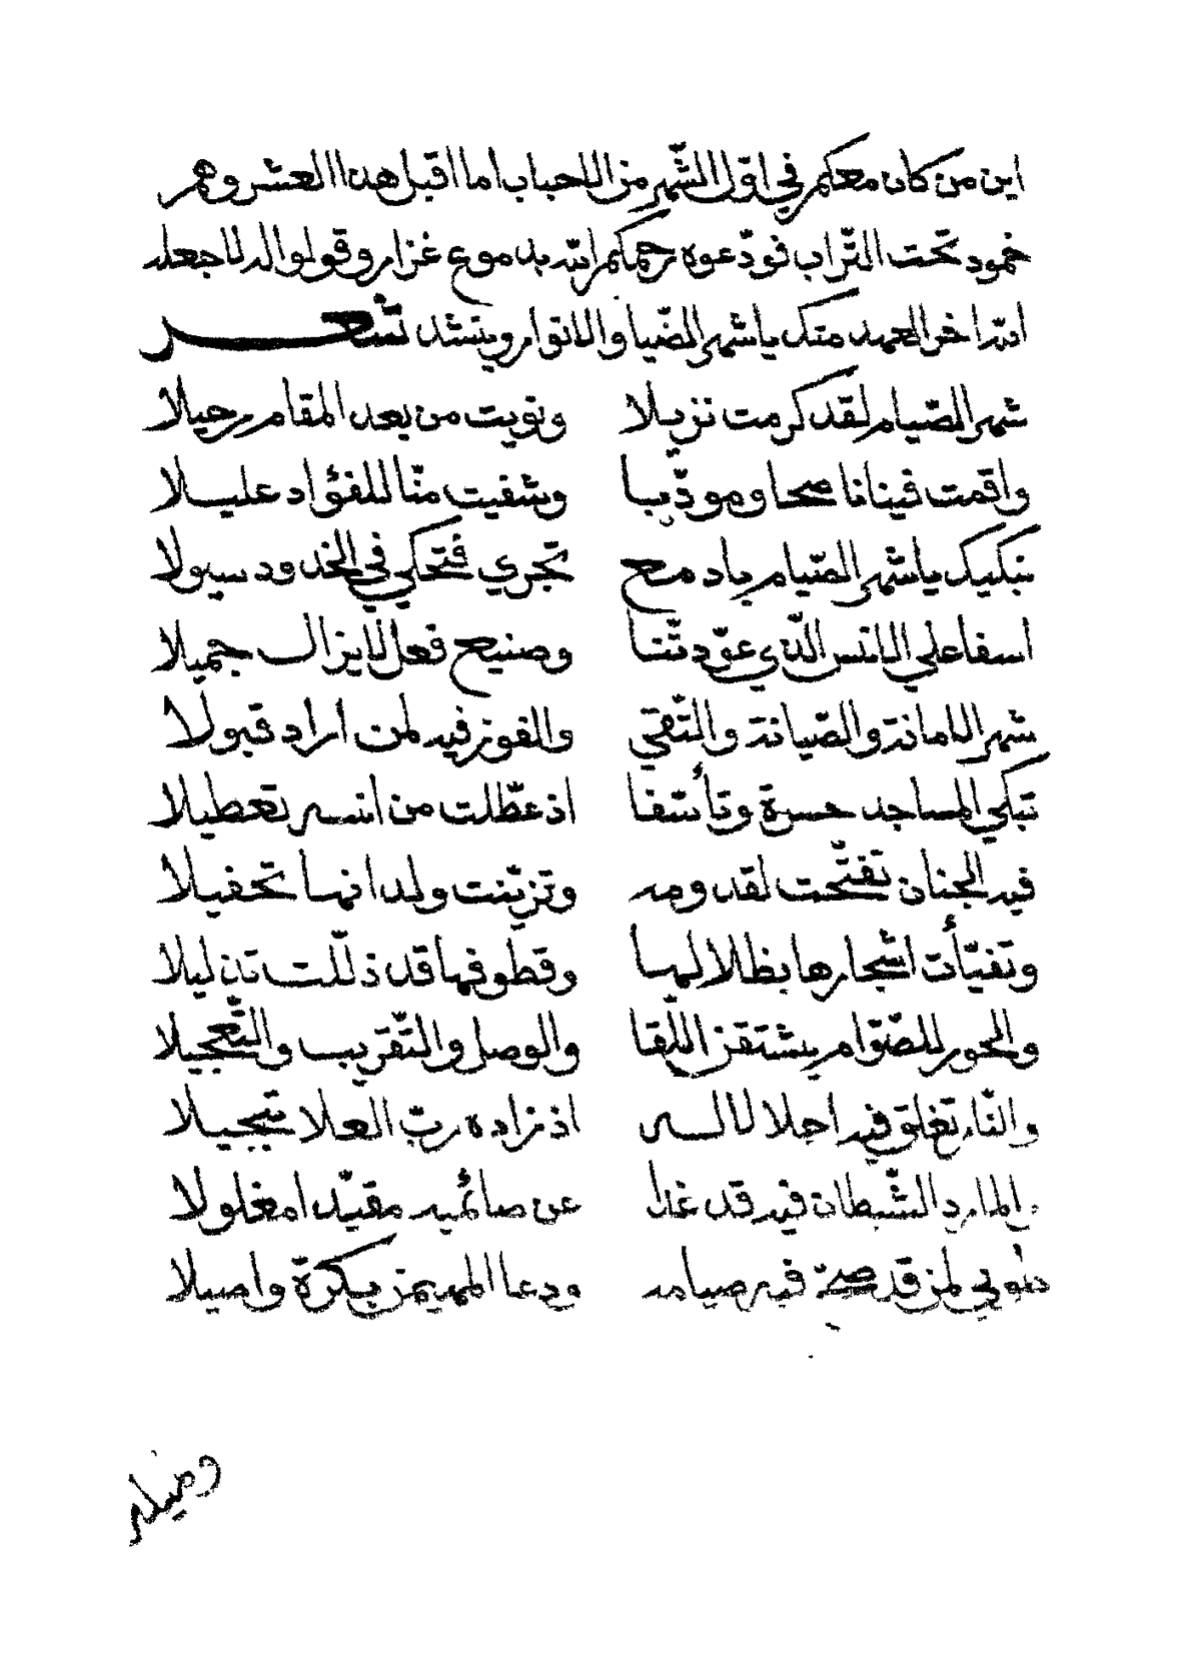 اين من كان معكم في اوّل الشّهر من الاحباب اما اقبل هذا العشر وهم
خمود تحت التّراب فودّعوه رحمكم الله بدموع غزار وقولوا له لا جعله
الله اخر العهد منك يا شهر الضّيا والانوار وينشد شعر
شهر الصّيام لقد كرمت نزيلا ونويت من بعد المقام رحيلا
واقمت فينا ناصحا ومودّبا وشفيت منّا للفؤاد عليلا
نبكيك يا شهر الصّيام بادمع تجري فتحكي في الخدود سيولا
اسفا على الانس الّذي عوّدتنا وصنيع فعل لا يزال جميلا
شهر الامانة والصّيانة والتّقى والفوز فيه لمن اراد قبولا
تبكي المساجد حسرة وتأسّفا اذ عطّلت من انسه تعطيلا
فيه الجنان تفتّحت لقدومه وتزيّنت ولدانها تحفيلا
وتفيّأت اشجارها بظلالها وقطوفها قد ذلّلت تذليلا
والحور للصّوّام يشتقن اللّقا والوصل والتّقريب والتّعجيلا
والنّار تغلق فيه اجلالا له اذ زاده ربّ العلا تبجيلا
والمارد الشّيطان فيه قد غدا عن صائميه مقيّدا مغلولا
طوبى لمن قد صحّ فيه صيامه ودعا المهيمن بكرة واصيلا